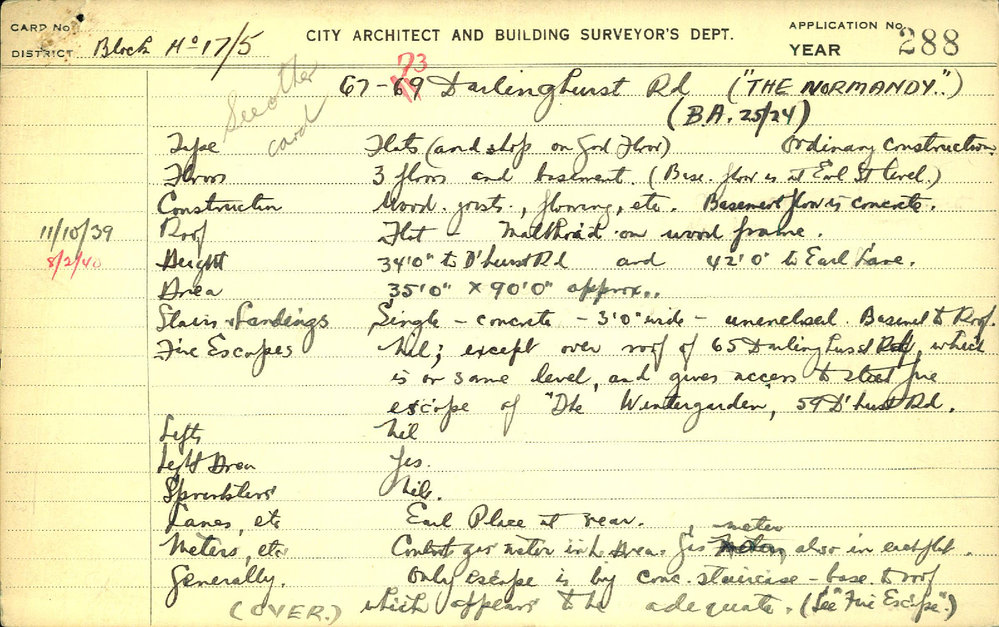 CARD No.
CITY ARCHITECT AND BUILDING SURVEYOR'S DEPT.
APPLICATION No.
DISTRICT Block No 17/5
YEAR 288
See other card
67-69 73 Darlinghurst Rd ("THE NORMANDY".)
(B.A. 25/24)
Type Flats (and shop on Grd Floor) Ordinary construction
Floors 3 floors and basement. (Base. floor is at Earl St level.)
Construction Wood. joists, flooring, etc. Basement floor is concrete.
11/10/39 Roof Flat - Malthoid on wood frame.
8/2/40 Height 34'0" to D'hurst Rd and 42'0" to Earl Lane.
Area 35'0" x 90'0" approx..
Stairs & Landings Single - concrete - 3'0" wide - unenclosed. Basement to Roof.
Fire Escapes Nil; except over roof of 65 Darlinghurst Rd, which
is on same level, and gives access to steel fire
escape of "The Wintergarden", 59 D'hurst Rd.
Lifts Nil
Light Area Yes.
Sprinklers Nil.
Lanes, etc Earl Place at rear.
meter
Meters, etc. gas meter in L. Area. Gas also in each flat.
Generally. Only escape is by conc. staircase - base. to roof
(OVER.) which appears to be adequate. (See "Fire Escape".)